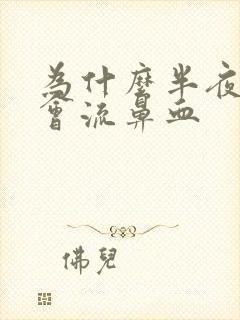 为什麼半夜
會流鼻血
佛兒